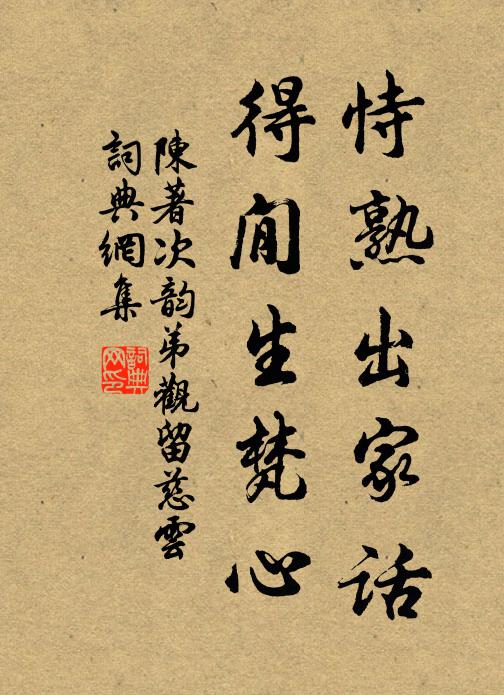 恃熟出家話
得閒生梵心
陳著次韵弟觀留慈雲
詞典網集
詞典
网印